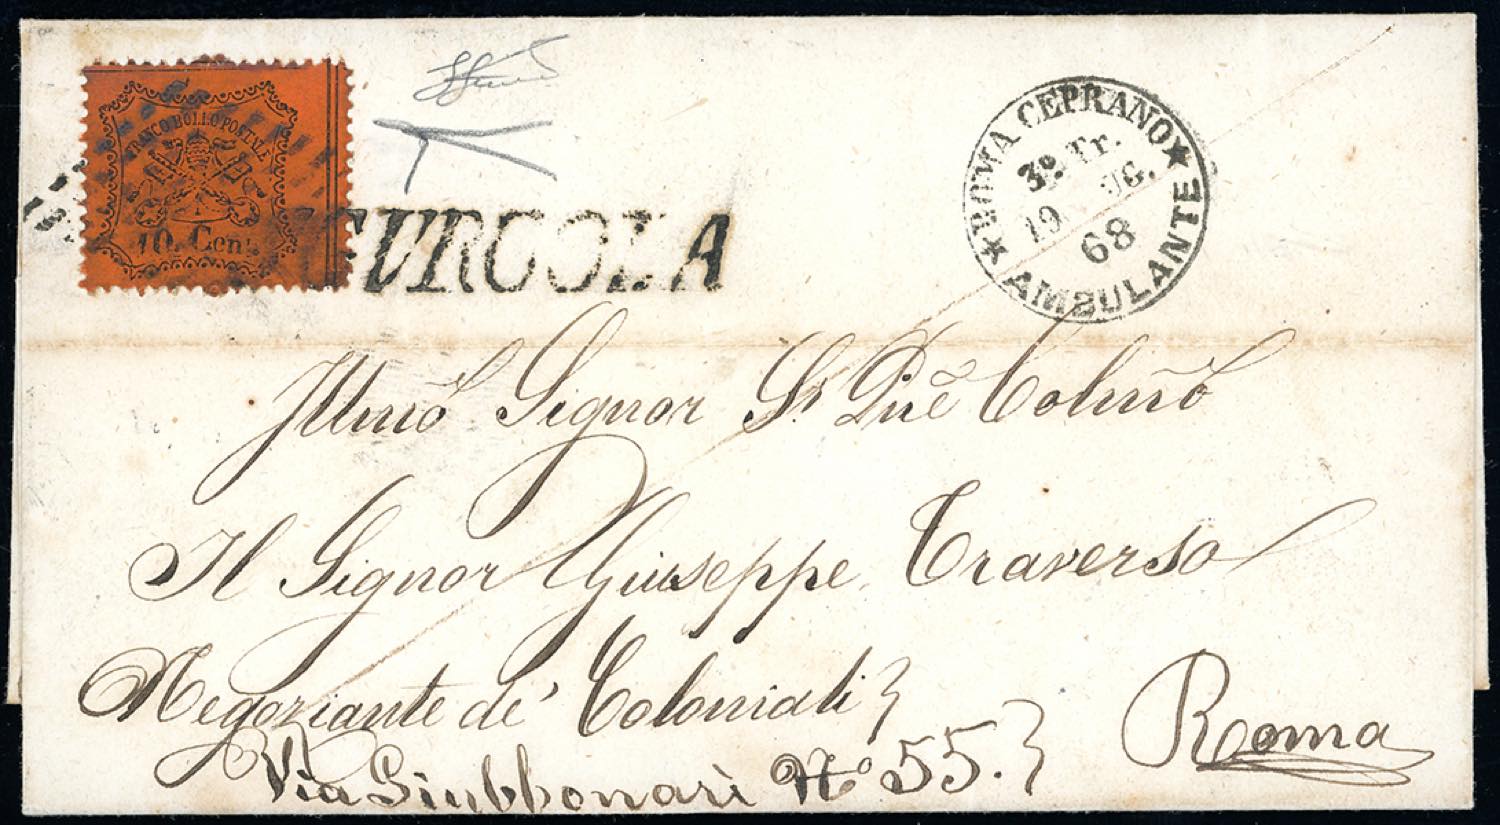 FRANCO BOLLO POSTALE
10 Cent.
GURGOLA
ROMA CEPRANO
3º Tr.
19 UG.
68
AMBULANTE
Signor
Il Signor Giuseppe Traverso
Negoziante de' Coloniali
Via Giubbonari Nº 55.
Roma